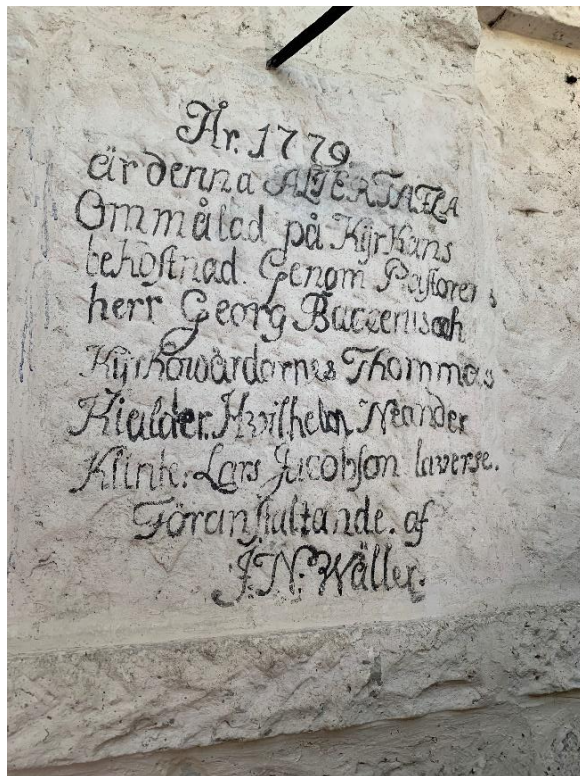 År. 1779.
är denna ALTERTAFLA
Ommålad på Kyrkans
bekostnad. Genom Pastoren
herr Georg och
Kyrkowärdarnes Thommas
Kialder. Neander
Klint. Lars Jacobson laverse.
Föranstaltande. af
J. N. Wäller.